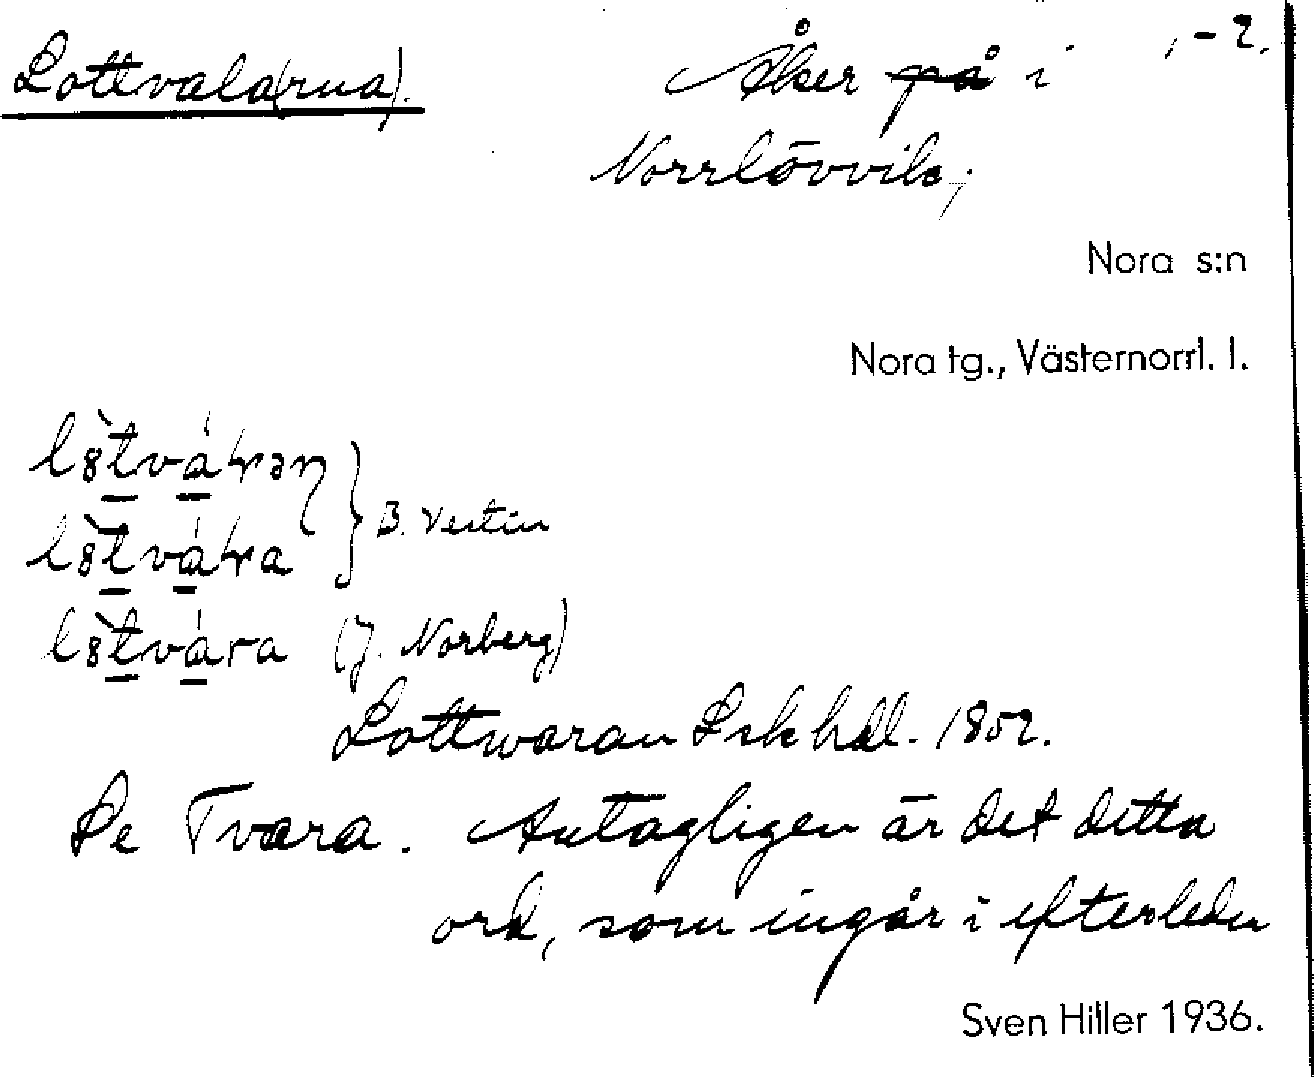 Lottvala(rna).
Åker på i
1-2.
Norrlövvik,
Nora s:n
Nora tg., Västernorrl. l.
B. Vestin
(J. Norberg)
Lottwaran Lskhdl. 1802.
Se Tvara. Antagligen är det detta
ord, som ingår i efterleden
Sven Hiller 1936.